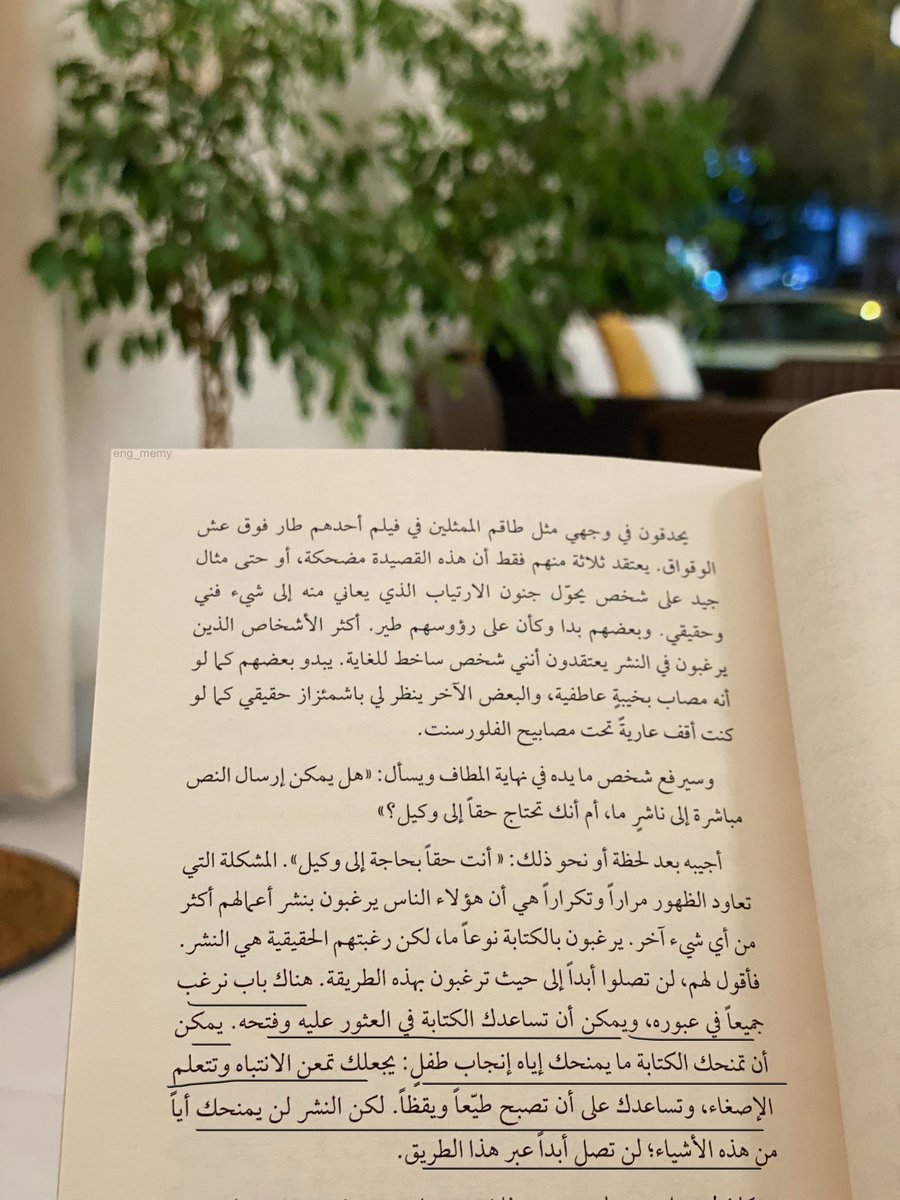 eng_memy
يحدقون في وجهي مثل طاقم الممثلين في فيلم أحدهم طار فوق عش
الوقواق. يعتقد ثلاثة منهم فقط أن هذه القصيدة مضحكة، أو حتى مثال
جيد على شخص يحوّل جنون الارتياب الذي يعاني منه إلى شيء فني
وحقيقي. وبعضهم بدا وكأن على رؤوسهم طير. أكثر الأشخاص الذين
يرغبون في النشر يعتقدون أنني شخص ساخط للغاية. يبدو بعضهم كما لو
أنه مصاب بخيبةٍ عاطفية، والبعض الآخر ينظر لي باشمئزاز حقيقي كما لو
كنت أقف عاريةً تحت مصابيح الفلورسنت.
وسيرفع شخص ما يده في نهاية المطاف ويسأل: «هل يمكن إرسال النص
مباشرة إلى ناشرٍ ما، أم أنك تحتاج حقاً إلى وكيل؟»
أجيبه بعد لحظة أو نحو ذلك: « أنت حقاً بحاجة إلى وكيل». المشكلة التي
تعاود الظهور مراراً وتكراراً هي أن هؤلاء الناس يرغبون بنشر أعمالهم أكثر
من أي شيء آخر. يرغبون بالكتابة نوعاً ما، لكن رغبتهم الحقيقية هي النشر.
فأقول لهم، لن تصلوا أبداً إلى حيث ترغبون بهذه الطريقة. هناك باب نرغب
جميعاً في عبوره، ويمكن أن تساعدك الكتابة في العثور عليه وفتحه. يمكن
أن تمنحك الكتابة ما يمنحك إياه إنجاب طفلٍ: يجعلك تمعن الانتباه وتتعلم
الإصغاء، وتساعدك على أن تصبح طيّعاً ويقظاً. لكن النشر لن يمنحك أياً
من هذه الأشياء؛ لن تصل أبداً عبر هذا الطريق.